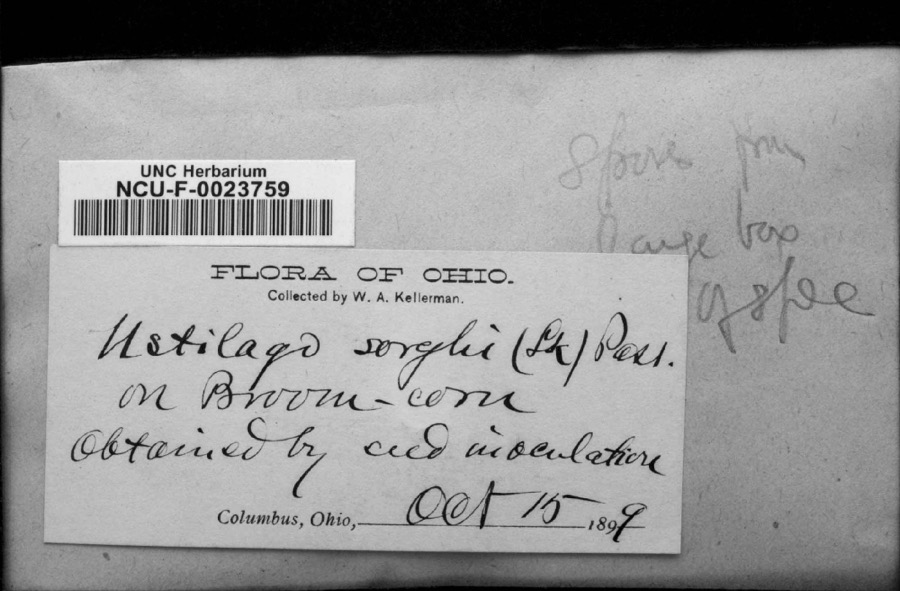 UNC Herbarium
NCU-F-0023759
FLORA OF OHIO.
Collected by W. A. Kellerman.
Ustilago sorghi (Lk) Pass.
on Broom-corn
Obtained by seed inoculation
Columbus, Ohio, Oct 15 1899
Spores from
large box
of spec